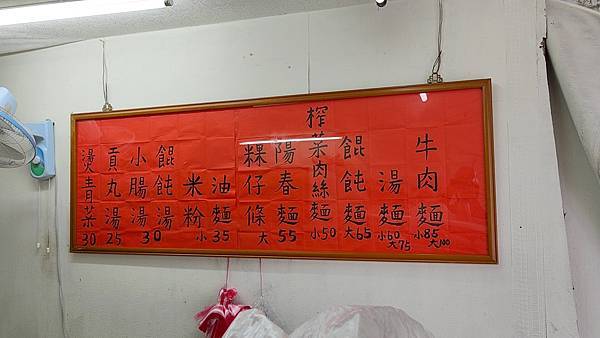 牛肉麵
小85
大100
湯麵
小60
大75
餛飩麵
榨菜肉絲麵
小50 大65
陽春麵
粿仔條
大 55
油麵
米粉
小 35
餛飩湯
小腸湯
30
貢丸湯
25
燙青菜
30